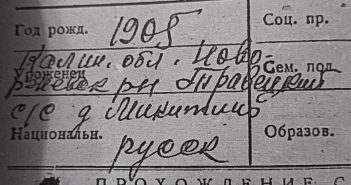 Год рожд. 1905 Соц. пр.
Калин. обл. Ново-
Уроженец Сем. пол.
ржевск рн
с/с д Микитино
Национальн. русск Образов.
ПРОХОЖДЕНИЕ С